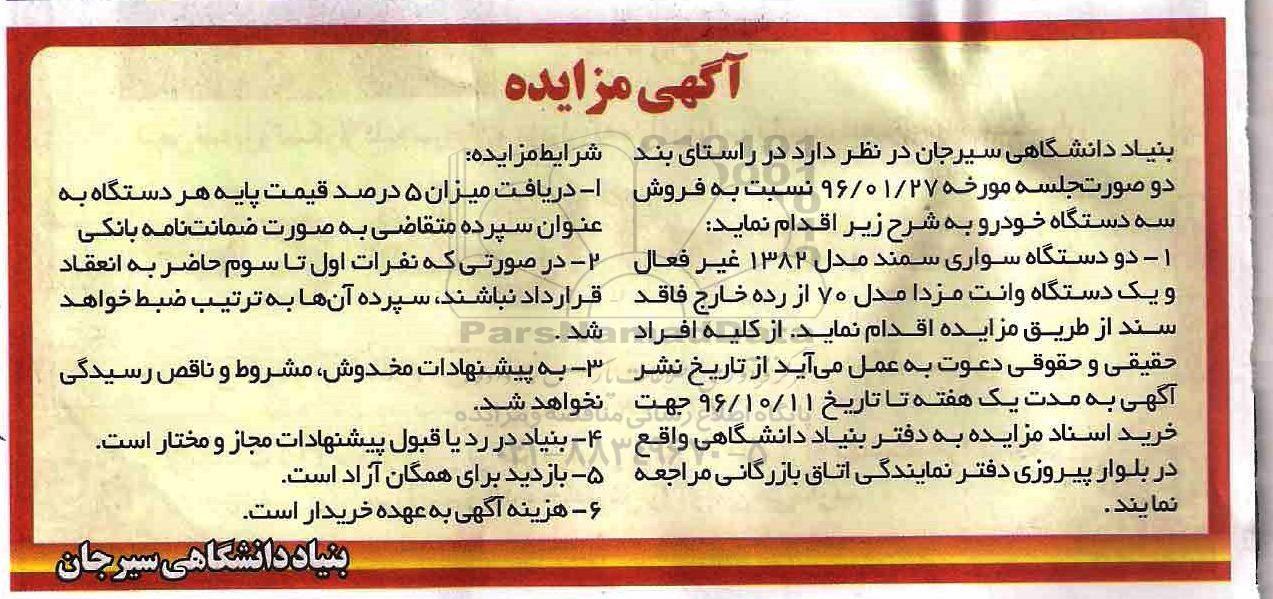 آگهی مزایده
بنیاد دانشگاهی سیرجان در نظر دارد در راستای بند
دو صورتجلسه مورخه ۹۶/۰۱/۲۷ نسبت به فروش
سه دستگاه خودرو به شرح زیر اقدام نماید:
۱- دو دستگاه سواری سمند مدل ۱۳۸۲ غیر فعال
و یک دستگاه وانت مزدا مدل ۷۰ از رده خارج فاقد
سند از طریق مزایده اقدام نماید. از کلیه افراد
حقیقی و حقوقی دعوت به عمل می‌آید از تاریخ نشر
آگهی به مدت یک هفته تا تاریخ ۹۶/۱۰/۱۱ جهت
خرید اسناد مزایده به دفتر بنیاد دانشگاهی واقع
در بلوار پیروزی دفتر نمایندگی اتاق بازرگانی مراجعه
نمایند.
شرایط مزایده:
۱- دریافت میزان ۵ درصد قیمت پایه هر دستگاه به
عنوان سپرده متقاضی به صورت ضمانت‌نامه بانکی
۲- در صورتی که نفرات اول تا سوم حاضر به انعقاد
قرارداد نباشند، سپرده آن‌ها به ترتیب ضبط خواهد
شد.
۳- به پیشنهادات مخدوش، مشروط و ناقص رسیدگی
نخواهد شد.
۴- بنیاد در رد یا قبول پیشنهادات مجاز و مختار است.
۵- بازدید برای همگان آزاد است.
۶- هزینه آگهی به عهده خریدار است.
بنیاد دانشگاهی سیرجان
ParsNamadData
پایگاه اطلاع رسانی مناقصه و مزایده